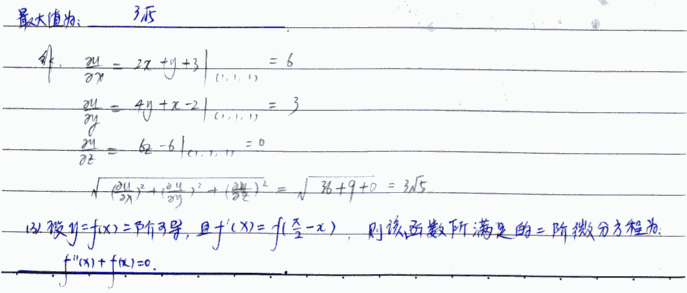 最大值为: 3√5
解. ∂u/∂x = 2x + y + 3 |(1,1,1) = 6
∂u/∂y = 4y + x - 2 |(1,1,1) = 3
∂u/∂z = 6z - 6 |(1,1,1) = 0
√((∂u/∂x)² + (∂u/∂y)² + (∂u/∂z)²) = √(36+9+0) = 3√5
(3) 设 y=f(x) 二阶可导, 且 f'(x) = f(π/2 - x), 则该函数所满足的二阶微分方程为:
f''(x) + f(x) = 0.